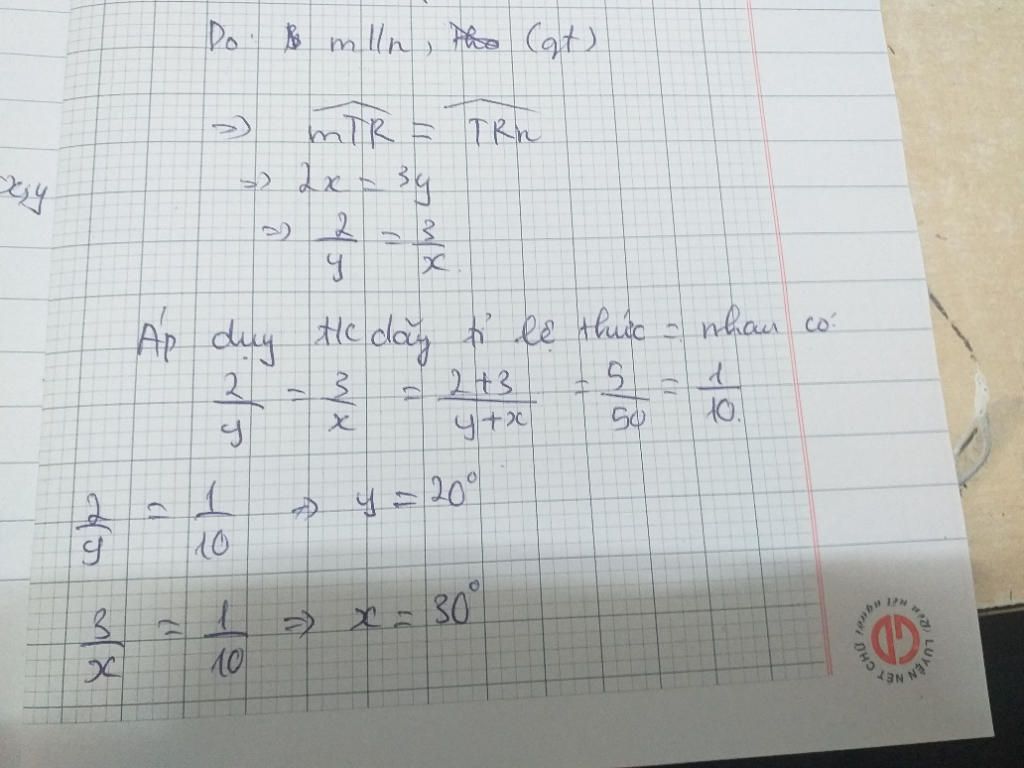 Do m//n, (gt)
=> mTR = TRn
x,y
=> 2x = 3y
=> 2/y = 3/x
Áp dụy t/c dãy tỉ lệ thức = nhau có:
2/y = 3/x = 2+3/y+x = 5/50 = 1/10
2/y = 1/10 => y = 20°
3/x = 1/10 => x = 30°
LUYỆN NÉT CHỮ RÈN NẾT NGƯỜI